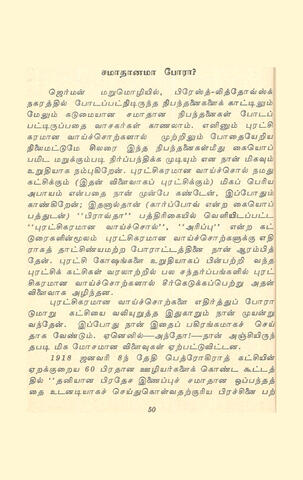 சமாதானமா போரா?
ஜெர்மன் மறுமொழியில், பிரேஸ்ட்-லித்தோவ்ஸ்க்
நகரத்தில் போடப்பட்டிருந்த நிபந்தனைகளைக் காட்டிலும்
மேலும் கடுமையான சமாதான நிபந்தனைகள் போடப்
பட்டிருப்பதை வாசகர்கள் காணலாம். எனினும் புரட்சி
கரமான வாய்ச்சொற்களால் முற்றிலும் போதையேறிய
நிலைமட்டுமே சிலரை இந்த நிபந்தனைகள்மீது கையொப்
பமிட மறுக்கும்படி நிர்ப்பந்திக்க முடியும் என நான் மிகவும்
உறுதியாக நம்புகிறேன். புரட்சிகரமான வாய்ச்சொல் நமது
கட்சிக்கும் (இதன் விளைவாகப் புரட்சிக்கும்) மிகப் பெரிய
அபாயம் என்பதை நான் முன்பே கண்டேன், இப்போதும்
காண்கிறேன்; இதனால்தான் (கார்ப்போவ் என்ற கையொப்
பத்துடன்) "பிராவ்தா" பத்திரிகையில் வெளியிடப்பட்ட
"புரட்சிகரமான வாய்ச்சொல்", "அரிப்பு" என்ற கட்
டுரைகளின்மூலம் புரட்சிகரமான வாய்ச்சொற்களுக்கு எதி
ராகத் தாட்சண்யமற்ற போராட்டத்தினை நான் ஆரம்பித்
தேன். புரட்சி கோஷங்களை உறுதியாகப் பின்பற்றி வந்த
புரட்சிக் கட்சிகள் வரலாற்றில் பல சந்தர்ப்பங்களில் புரட்
சிகரமான வாய்ச்சொற்களால் சீர்கெடுக்கப்பெற்று அதன்
விளைவாக அழிந்தன.
புரட்சிகரமான வாய்ச்சொற்களை எதிர்த்துப் போரா
டுமாறு கட்சியை வலியுறுத்த இதுகாறும் நான் முயன்று
வந்தேன். இப்போது நான் இதைப் பகிரங்கமாகச் செய்
தாக வேண்டும். ஏனெனில்—அந்தோ!—நான் அஞ்சியிருந்
தபடி மிக மோசமான விளைவுகள் ஏற்பட்டுவிட்டன.
1918 ஜனவரி 8ந் தேதி பெத்ரோகிராத் கட்சியின்
ஏறக்குறைய 60 பிரதான ஊழியர்களைக் கொண்ட கூட்டத்
தில் "தனியான பிரதேச இணைப்புச் சமாதான ஒப்பந்தத்
தை உடனடியாகச் செய்துகொள்வதற்குரிய பிரச்சினை பற்
50